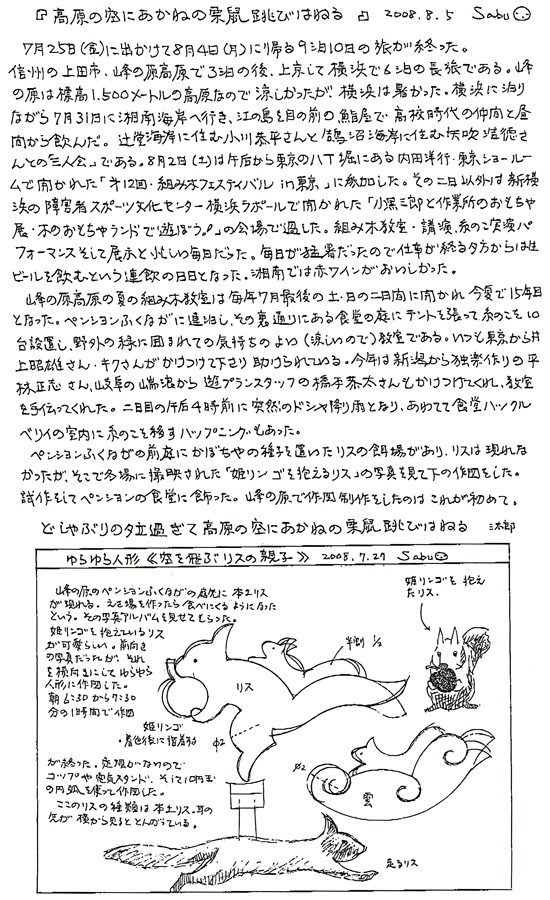 『高原の空にあかねの栗鼠跳びはねる』 2008.8.5 Sabu
7月25日(金)に出かけて8月4日(月)に帰る9泊10日の旅が終った。
信州の上田市、峰の原高原で3泊の後、上京して横浜で6泊の長旅である。峰
の原は標高1,500メートルの高原なので涼しかったが、横浜は暑かった。横浜に泊り
ながら7月31日に湘南海岸へ行き、江の島を目の前の鮨屋で高校時代の仲間と昼
間から飲んだ。辻堂海岸に住む小川恭平さんと鵠沼海岸に住む矢吹浩徳さ
んとの三人会」である。8月2日(土)は午后から東京の八丁堀にある内田洋行・東京ショールー
ムで開かれた「才12回・組み木フェスティバル in 東京」に参加した。その二日以外は新横
浜の障害者スポーツ文化センター横浜ラポールで開かれた「小黒三郎と作業所のおもちゃ
展・木のおもちゃランドで遊ぼう!」の会場で過した。組み木教室・講演、糸のこ実演パ
フォーマンスそして展示と忙しい毎日だった。毎日が猛暑だったので仕事が終る夕方からは生
ビールを飲むという連飲の日日となった。湘南では赤ワインがおいしかった。
峰の原高原の夏の組み木教室は毎年7月最後の土・日の二日間に開かれ今夏で15年目
となった。ペンションふくながに連泊し、その裏通りにある食堂の庭にテントを張って糸のこを10
台設置し、野外の緑に囲まれての気持ちのよい(涼しいので)教室である。いつも東京から井
上昭雄さん・キクさんがかけつけて下さり助けられている。今年は新潟から独楽作りの平
林正志さん、岐阜の端浪から遊プランスタッフの橋本恭太さんもかけつけてくれ、教室
を手伝ってくれた。二日目の午后4時前に突然のドシャ降り雨となり、あわてて食堂ハックル
ベリイの室内に糸のこを移すハップニングもあった。
ペンションふくながの前庭にかぼちゃの種子を置いたリスの餌場があり、リスは現れな
かったが、そこで冬場に撮映された「姫リンゴを抱えるリス」の写真を見て下の作図をした。
試作をしてペンションの食堂に飾った。峰の原で作図制作をしたのはこれが初めて。
どしゃぶりの夕立過ぎて高原の空にあかねの栗鼠跳びはねる 三郎
ゆらゆら人形《空を飛ぶリスの親子》 2008.7.27 Sabu
峰の原のペンションふくながの庭先に本土リス
が現れる。えさ場を作ったら食べにくるようになった
という。その写真アルバムを見せてもらった。
姫リンゴを抱えているリス
が可愛らしい。前向き
の写真だったが、それ
を横向きにしてゆらゆら
人形に作図した。
朝6:30から7:30
分の1時間で作図
が終った。定規がないので
コップや写真スタンド、そして10円玉
の円弧を使って作図した。
ここのリスの種類は本土リス。耳の
先が横から見るととんがっている。
半割 1/2
リス
姫リンゴ
・着色後に接着する
φ2
姫リンゴを抱え
たリス。
φ2
雲
走るリス